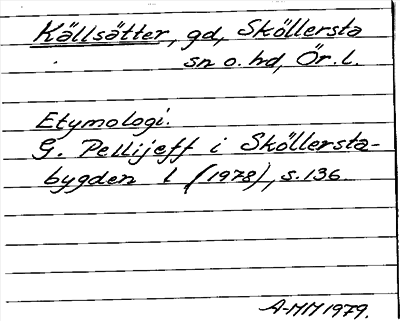 Källsätter, gd, Sköllersta
sn o. hd, Ör. l.
Etymologi:
G. Pellijeff i Sköllersta-
bygden 1 (1978), s. 136
A-MM 1979.